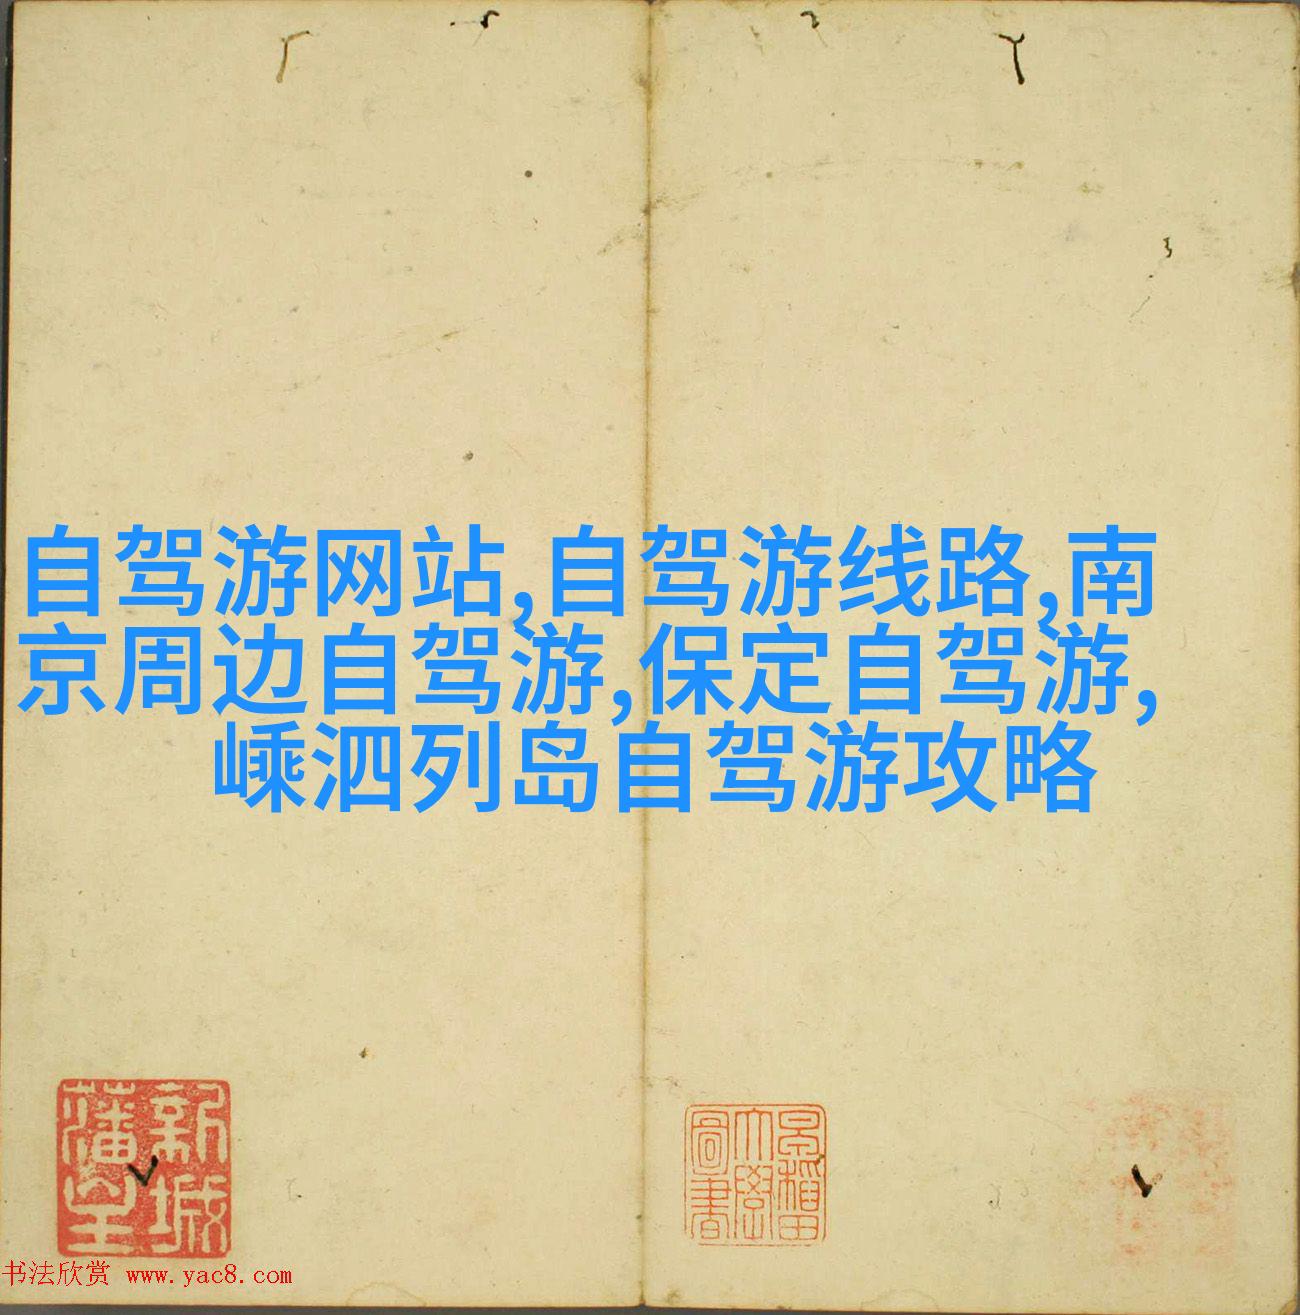 自驾游网站,自驾游线路,南
京周边自驾游,保定自驾游,
嵊泗列岛自驾游攻略
新城
藩室
早稻田
大學
圖書
书法欣赏 www.yac8.com